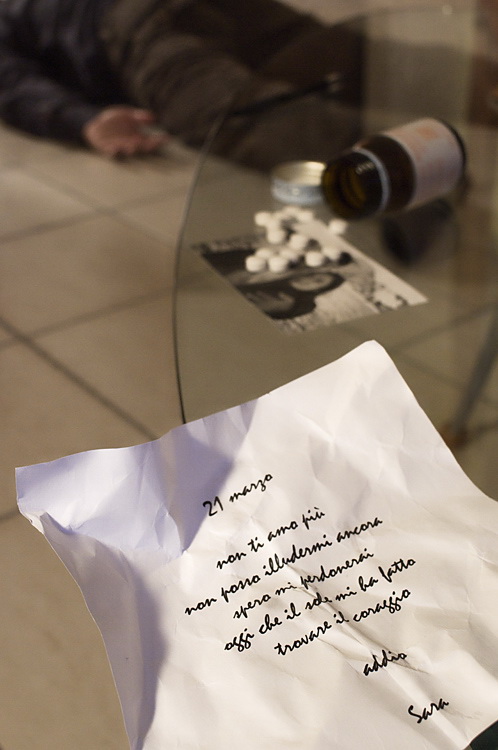 21 marzo
non ti amo più
non posso illudermi ancora
spero mi perdonerai
oggi che il sole mi ha fatto
trovare il coraggio
addio
Sara